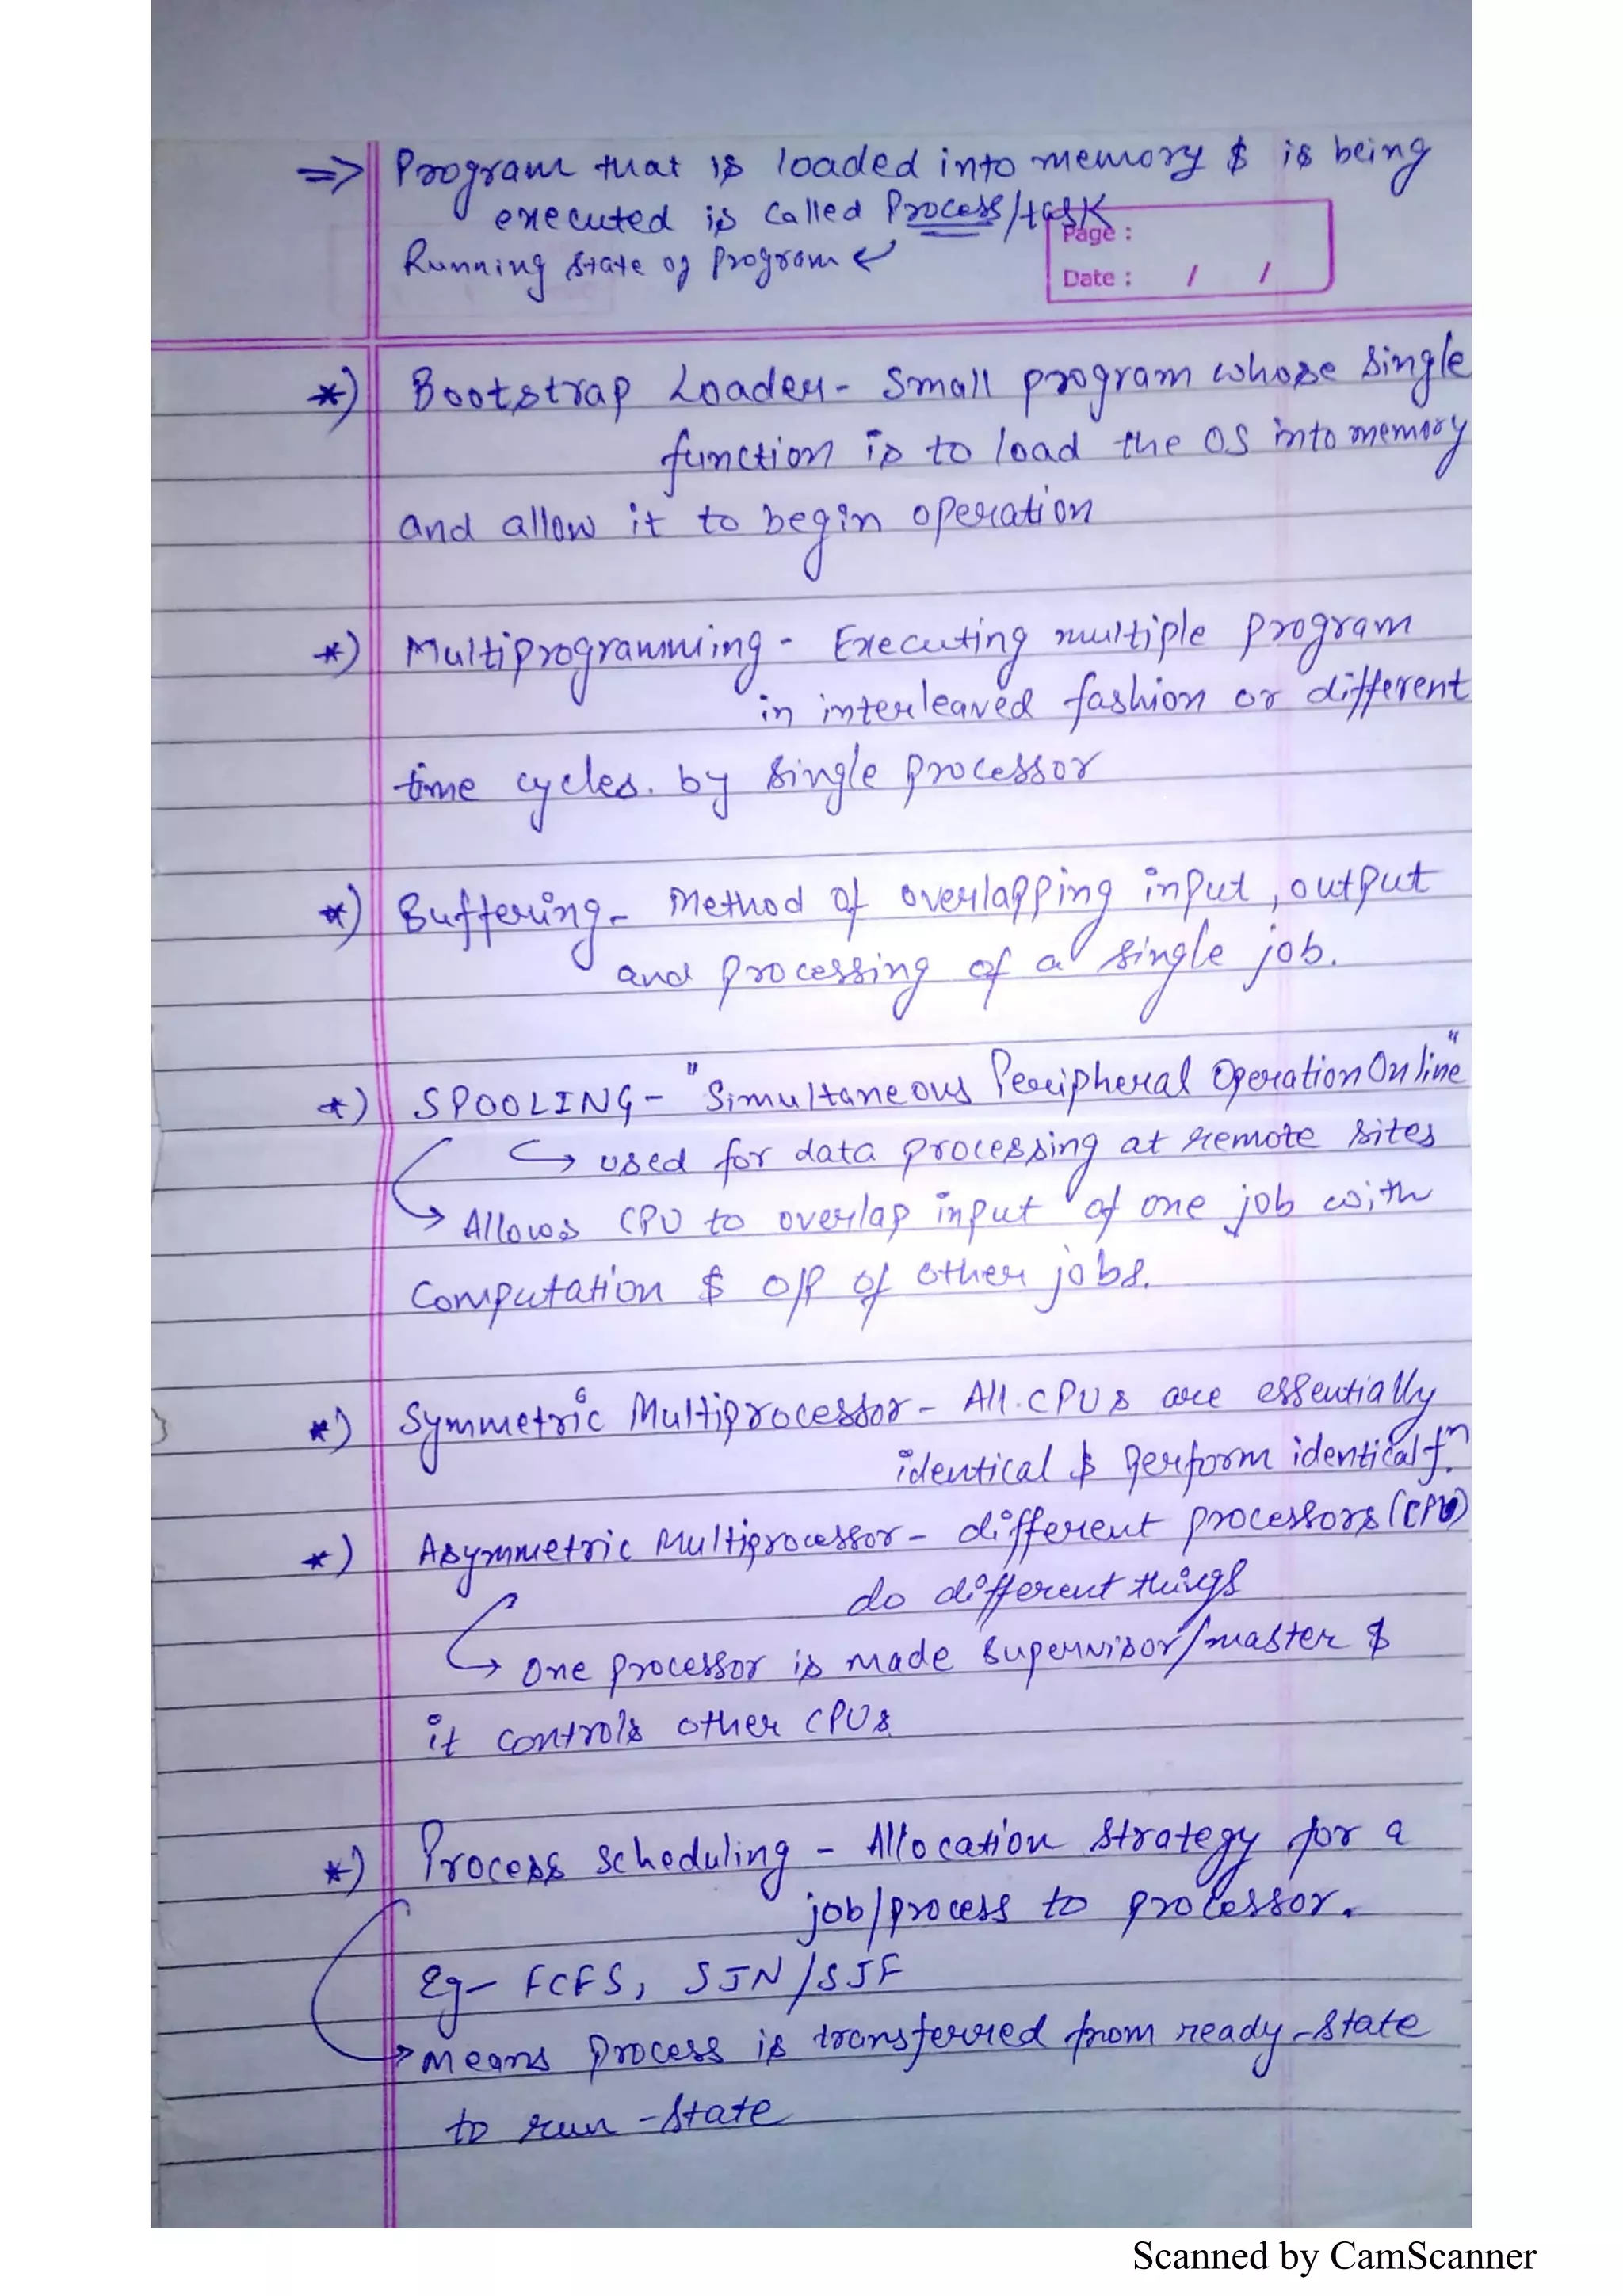 => Program that is loaded into memory & is being
executed is called Process/task
Running state of program ↲
Page :
Date : / /
*) Bootstrap Loader - Small program whose single
function is to load the OS into memory
and allow it to begin operation
*) Multiprogramming - Executing multiple program
in interleaved fashion or different
time cycles. by single processor
*) Buffering - Method of overlapping input, output
and processing of a single job.
*) SPOOLING - "Simultaneous Peripheral Operation Online"
↳ used for data processing at remote sites
↳ Allows CPU to overlap input of one job with
Computation & O/P of other jobs.
*) Symmetric Multiprocessor - All CPUs are essentially
identical & perform identical fn.
*) Asymmetric Multiprocessor - different processors (CPU)
do different things
↳ One processor is made supervisor/master &
it controls other CPUs
*) Process scheduling - Allocation strategy for a
job/process to processor.
Eg - FCFS, SJN/SJF
→ Means process is transferred from ready-state
to run-state
Scanned by CamScanner